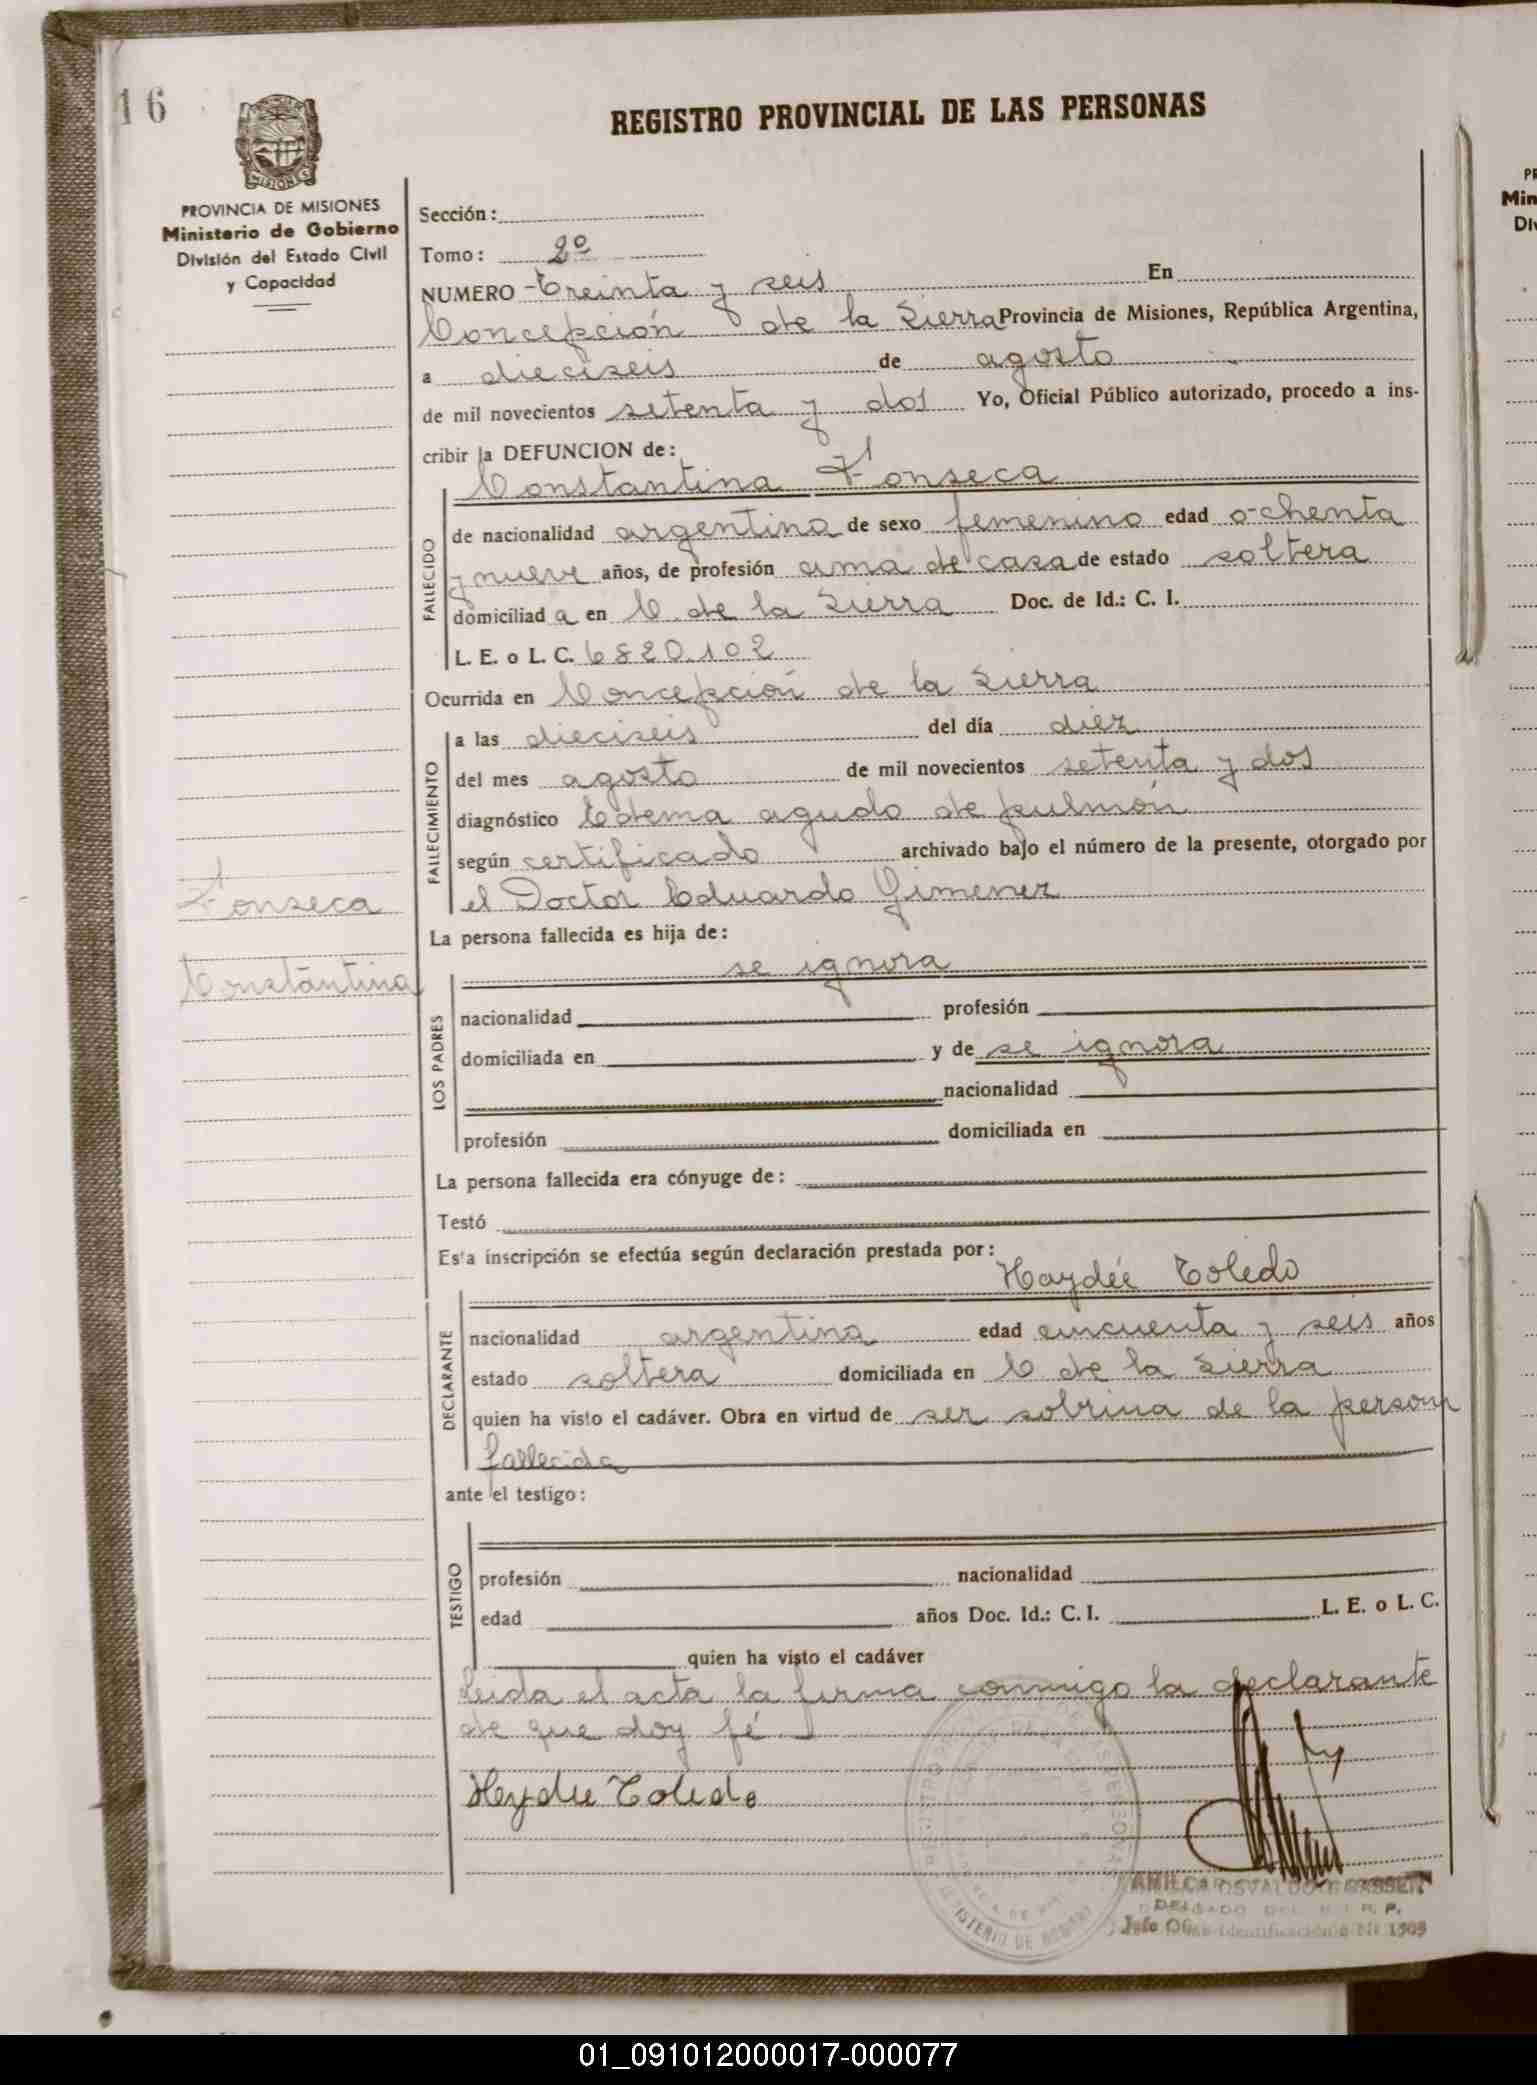 16
REGISTRO PROVINCIAL DE LAS PERSONAS
MISIONES
PROVINCIA DE MISIONES
Ministerio de Gobierno
División del Estado Civil
y Capacidad
Fonseca
Constantina
Sección:
Tomo: 2º
NUMERO Treinta y seis En
Concepción de la Sierra Provincia de Misiones, República Argentina,
a dieciseis de agosto
de mil novecientos setenta y dos Yo, Oficial Público autorizado, procedo a ins-
cribir la DEFUNCION de:
Constantina Fonseca
FALLECIDO
de nacionalidad argentina de sexo femenino edad ochenta
y nueve años, de profesión ama de casa de estado soltera
domiciliad a en C. de la Sierra Doc. de Id.: C. I.
L. E. o L. C. 6820.102
Ocurrida en Concepción de la Sierra
FALLECIMIENTO
a las dieciseis del día diez
del mes agosto de mil novecientos setenta y dos
diagnóstico Edema agudo de pulmón
según certificado archivado bajo el número de la presente, otorgado por
el Doctor Eduardo Gimenez
La persona fallecida es hija de:
se ignora
LOS PADRES
nacionalidad profesión
domiciliada en y de se ignora
nacionalidad
profesión domiciliada en
La persona fallecida era cónyuge de:
Testó
Esta inscripción se efectúa según declaración prestada por:
Haydée Toledo
DECLARANTE
nacionalidad argentina edad cincuenta y seis años
estado soltera domiciliada en C. de la Sierra
quien ha visto el cadáver. Obra en virtud de ser sobrina de la person
fallecida
ante el testigo:
TESTIGO
profesión nacionalidad
edad años Doc. Id.: C. I. L. E. o L. C.
quien ha visto el cadáver
Leida el acta la firma conmigo la declarante
de que doy fé
Heydée Toledo
OSVALDO
Jefe
1909
01_091012000017-000077